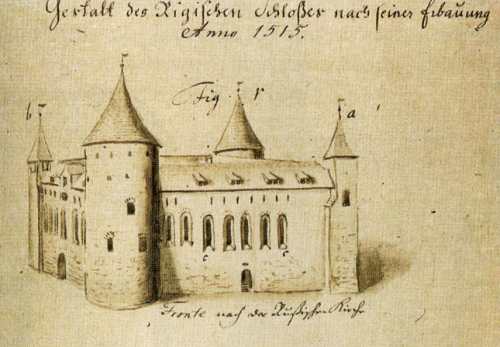 Gestalt des Rigischen Schloßes nach seiner Erbauung
Anno 1515.
Fig. r
b
a
c
c
Fronte nach der Rußischen Kirche